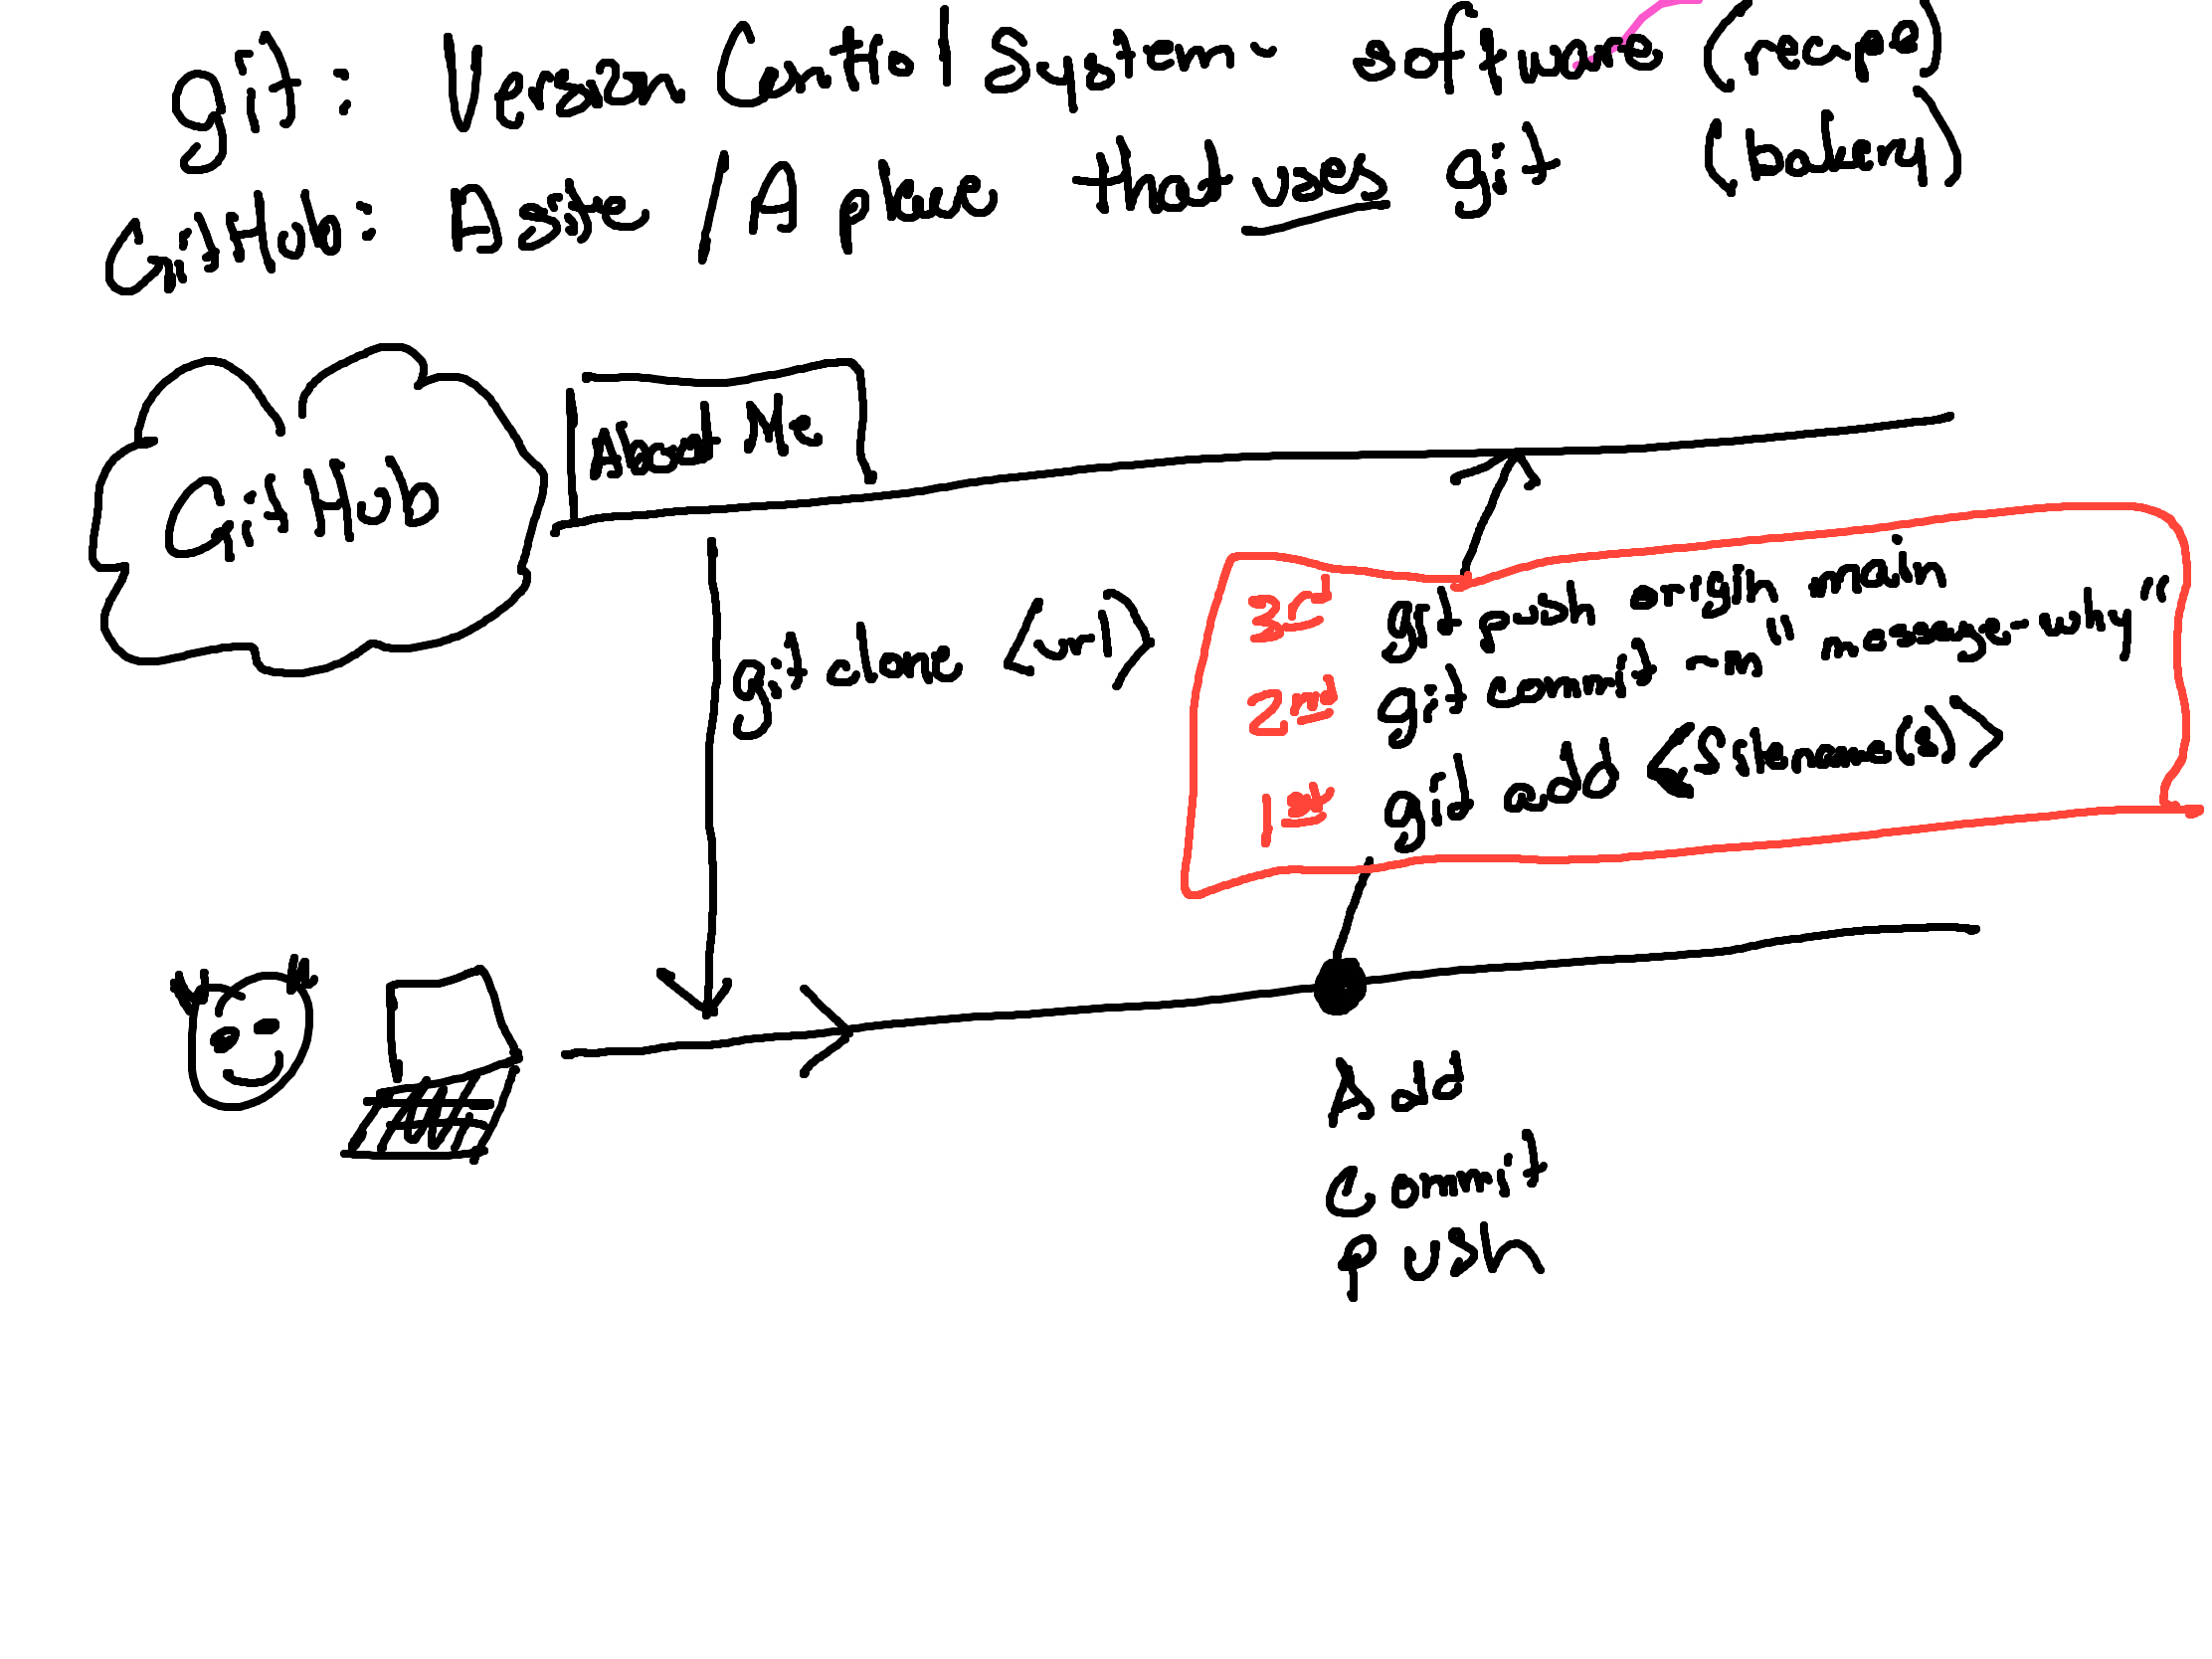 git: Version Control System - software (recipe)
GitHub: A site / A place that uses git (bakery)
About Me
GitHub
git clone <url>
3rd git push origin main
2nd git commit -m "message-why"
1st git add <filename(s)>
Add
Commit
Push